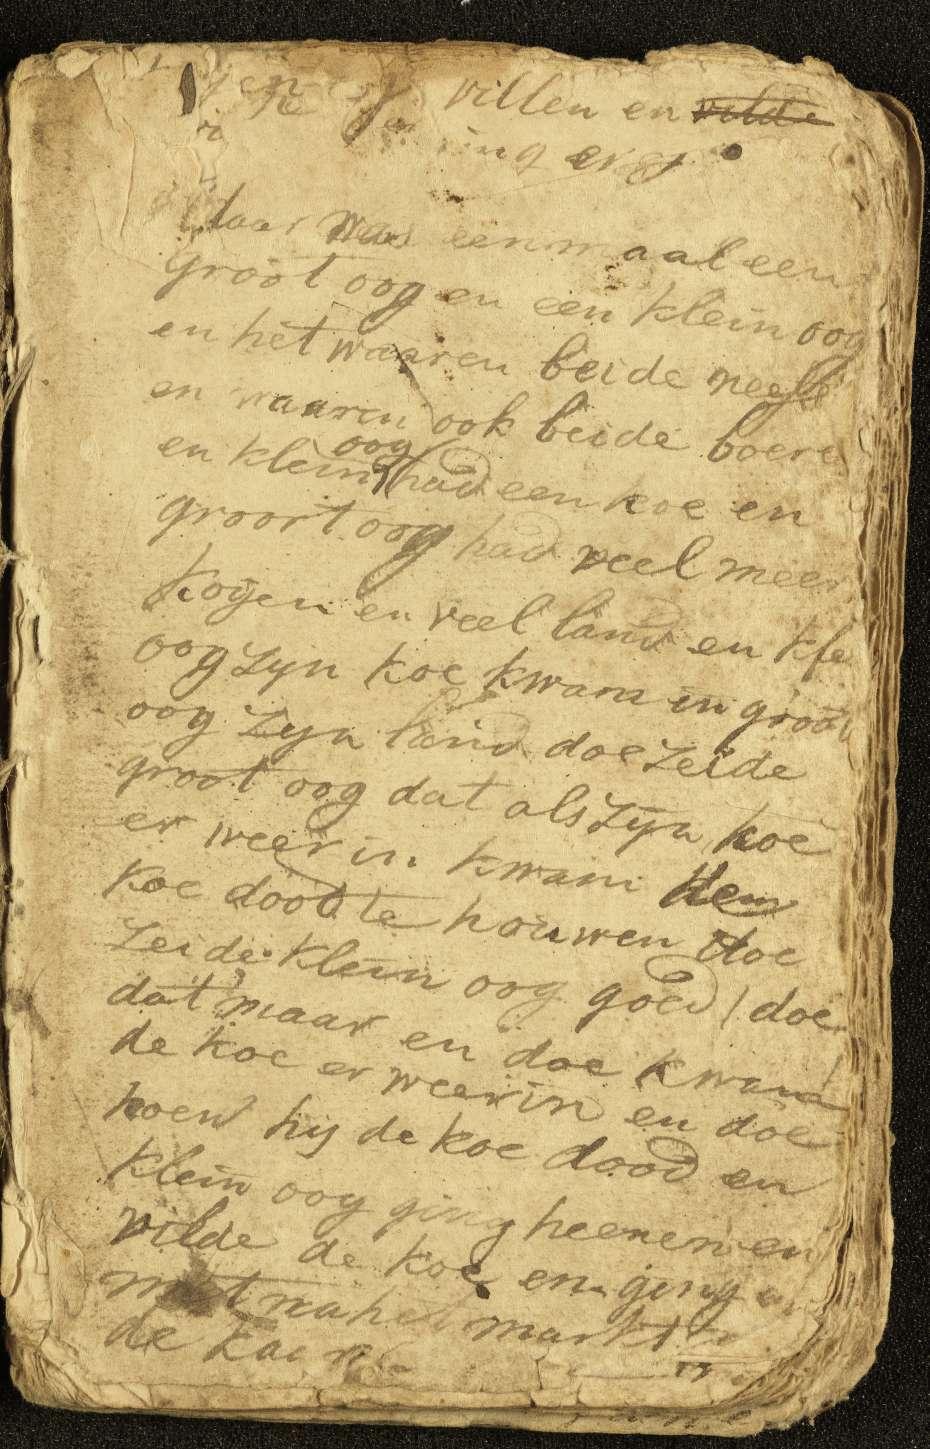 villen en vilde
daar was eenmaal een
groot oog en een klein oog
en het waaren beide neefs
en waaren ook beide boere
en klein oog had een koe en
groort oog had veel meer
koyen en veel land en kle
oog zyn koe kwam in groot
oog zyn land doe zeide
groot oog dat als zyn koe
er weer in kwam dem
koe dood te houwen doe
zeide klein oog goed / doe
dat maar en doe kwam
de koe er weer in en doe
hoew hij de koe dood en
klein oog ging heenen en
vilde de koe en ging er
met na het markt
de